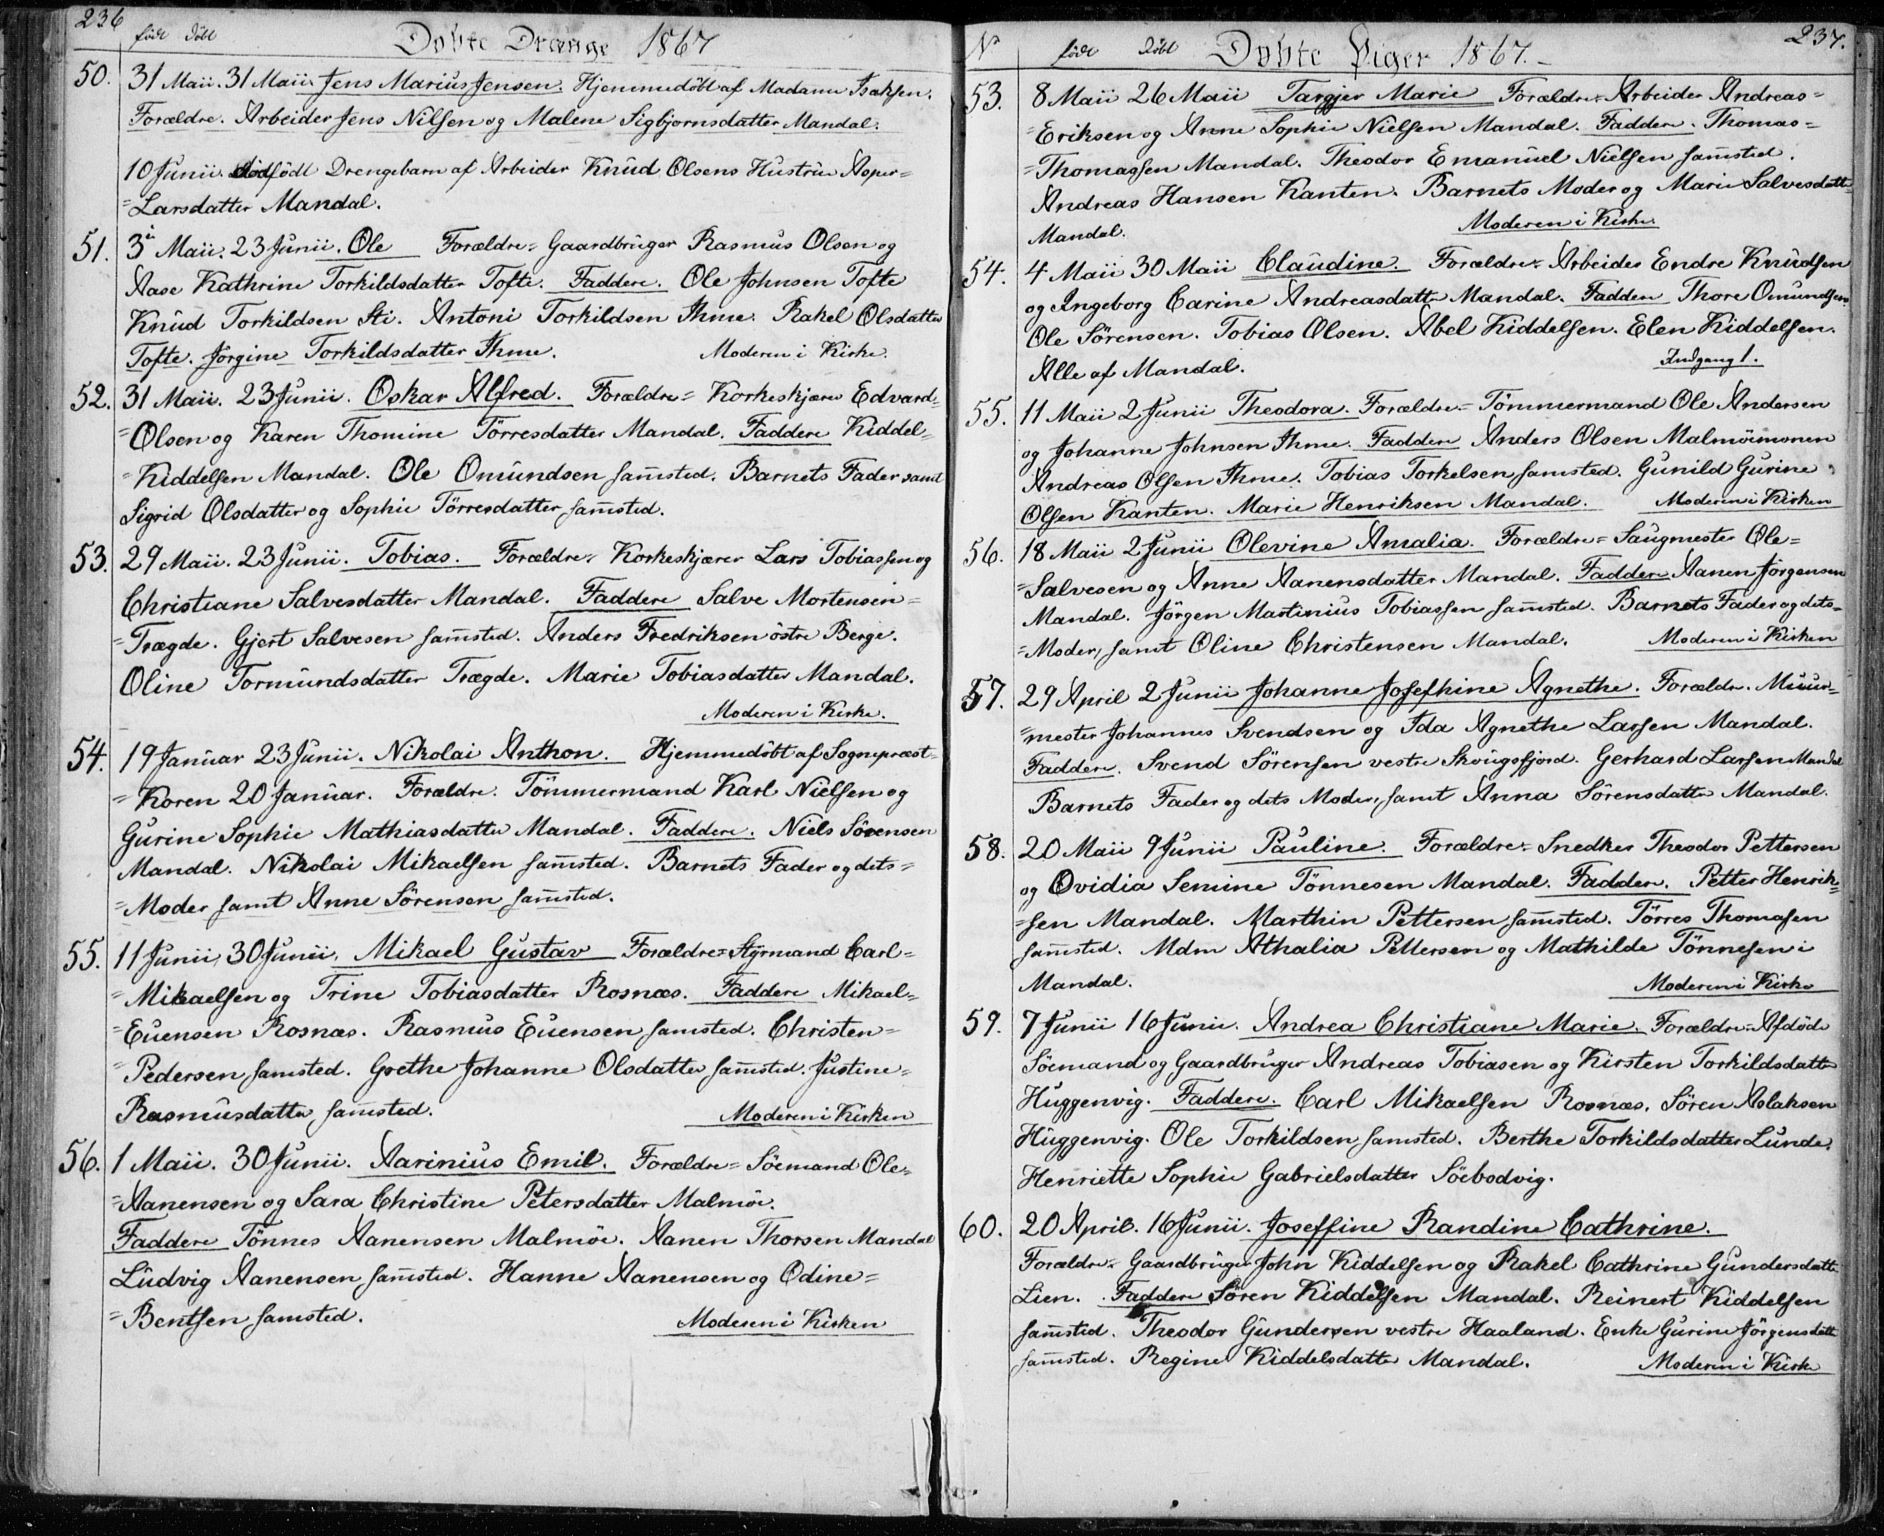 236
født döbt Döbte Drænge 1867
50. 31 Maii. 31 Maii. Jens Marius Jensen. Hjemmedöbt af Madame Isaksen.
Forældre. Arbeider Jens Nilsen og Malene Sigbjornsdatter Mandal.
10 Junii. dödfödt Drengebarn af Arbeider Knud Olsens Hustrue Asper=
=Larsdatter Mandal.
51. 3 Maii. 23 Junii. Ole Forældre= Gaardbruger Rasmus Olsen og
Aase Kathrine Torkildsdatter Tofte. Faddere. Ole Johnsen Tofte
Knud Torkildsen Sti. Antoni Torkildsen Ihme. Rakel Olsdatter
Tofte. Jörgine Torkildsdatter Ihme. Moderen i Kirke.
52. 31 Maii. 23 Junii. Oskar Alfred. Forældre= Korkeskjærer Edvard=
=Olsen og Karen Thomine Törresdatter Mandal. Faddere Kiddel=
=Kiddelsen Mandal. Ole Omundsen sam̅sted. Barnets Fader samt
Sigrid Olsdatter og Sophie Törresdatter sam̅sted.
53. 29 Maii. 23 Junii. Tobias. Forældre. Korkeskjærer Lars Tobiassen og
Christiane Salvesdatter Mandal. Faddere Salve Mortensen=
=Trægde. Gjert Salvesen sam̅sted. Anders Fredriksen östre Berge.
Oline Tormundsdatter Trægde. Marie Tobiasdatter Mandal.
Moderen i Kirke.
54. 19 Januar 23 Junii. Nikolai Anthon. Hjemmedöbt af Sognepræst=
=Koren 20 Januar. Forældre. Tömmermand Karl Nielsen og
Gurine Sophie Mathiasdatter Mandal. Faddere. Niels Sörensen
Mandal. Nikolai Mikaelsen sam̅sted. Barnets Fader og dets=
=Moder samt Anne Sörensen sam̅sted.
55. 11 Junii, 30 Junii, Mikael Gustav Forældre= Styrmand Carl=
=Mikaelsen og Trine Tobiasdatter Rosnæs. Faddere Mikael=
=Euensen Rosnæs. Rasmus Euensen sam̅sted. Christen=
=Pedersen sam̅sted. Grethe Johanne Olsdatter sam̅sted. Justine=
Rasmusdatter sam̅sted. Moderen i Kirken
56. 1 Maii. 30 Junii. Aarinius Emil. Forældre= Söemand Ole=
=Aanensen og Sara Christine Petersdatter Malmöe.
Faddere Tönnes Aanensen Malmöe. Aanen Thorsen Mandal
Ludvig Aanensen sam̅sted. Hanne Aanensen og Odine=
=Bentsen sam̅sted. Moderen i Kirken
237.
No født döbt Döbte Piger 1867.-
53. 8 Maii 26 Maii Targjer Marie Forældre= Arbeider Andreas=
=Eriksen og Anne Sophie Nielsen Mandal. Faddere. Thomas=
=Thomassen Mandal. Theodor Emanuel Nielsen sam̅sted.
Andreas Hansen Kanten. Barnets Moder og Marie Salvesdatt=
Mandal. Moderen i Kirke.
54. 4 Maii 30 Maii Claudine. Forældre= Arbeider Endre Knudsen
og Ingeborg Carine Andreasdatter Mandal. Faddere Thore Omundsen
Ole Sörensen. Tobias Olsen. Abel Kiddelsen. Elen Kiddelsen.
Alle af Mandal. Indgang 1.
55. 11 Maii 2 Junii Theodora. Forældre= Tömmermand Ole Andersen
og Johanne Johnsen Ihme. Faddere Anders Olsen Malmöimonen
Andreas Olsen Ihme. Tobias Torkelsen samsted. Gunild Gurine
Olsen Kanten. Marie Henriksen Mandal. Moderen i Kirken
56. 18 Maii 2 Junii Olevine Amalia. Forældre= Saugmester Ole=
=Salvesen og Anne Aanensdatter Mandal. Faddere Aanen Jörgensen
Mandal. Jörgen Martinius Tobiassen sam̅sted. Barnets Fader og dets=
=Moder, samt Oline Christensen Mandal. Moderen i Kirken
57. 29 April 2 Junii Johanne Josephine Agnethe. Forældre. Muur=
=mester Johannes Svendsen og Ida Agnethe Larsen Mandal.
Faddere. Svend Sörensen vestre Skougsfjord. Gerhard Larsen Mandal
Barnets Fader og dets Moder, samt Anna Sörensdatter Mandal.
58. 20 Maii 9 Junii Pauline. Forældre= Snedker Theodor Pettersen
og Ovidia Semine Tönnesen Mandal. Faddere. Petter Henrik=
=sen Mandal. Marthin Pettersen sam̅sted. Törres Thomasen
sam̅sted. Mdm Athalia Pettersen og Mathilde Tönnesen i
Mandal. Moderen i Kirke
59. 7 Junii 16 Junii. Andrea Christiane Marie. Forældre= Afdöde
Söemand og Gaardbruger Andreas Tobiasen og Kirsten Torkildsdatter
Huggenvig. Faddere. Carl Mikaelsen Rosnæs. Sören Aslaksen
Huggenvig. Ole Torkildsen sam̅sted. Berthe Torkildsdatter Lunde.
Henriette Sophie Gabrielsdatter Söebodvig.
60. 20 April. 16 Junii. Joseffine Randine Cathrine.
Forældre= Gaardbruger John Kiddelsen og Rakel Cathrine Gundersdatter
Lien. Faddere Sören Kiddelsen Mandal. Reinert Kiddelsen
sam̅sted. Theodor Gundersen vestre Haaland. Enke Gurine Jörgensdatt
sam̅sted. Regine Kiddelsdatter Mandal. Moderen i Kirke